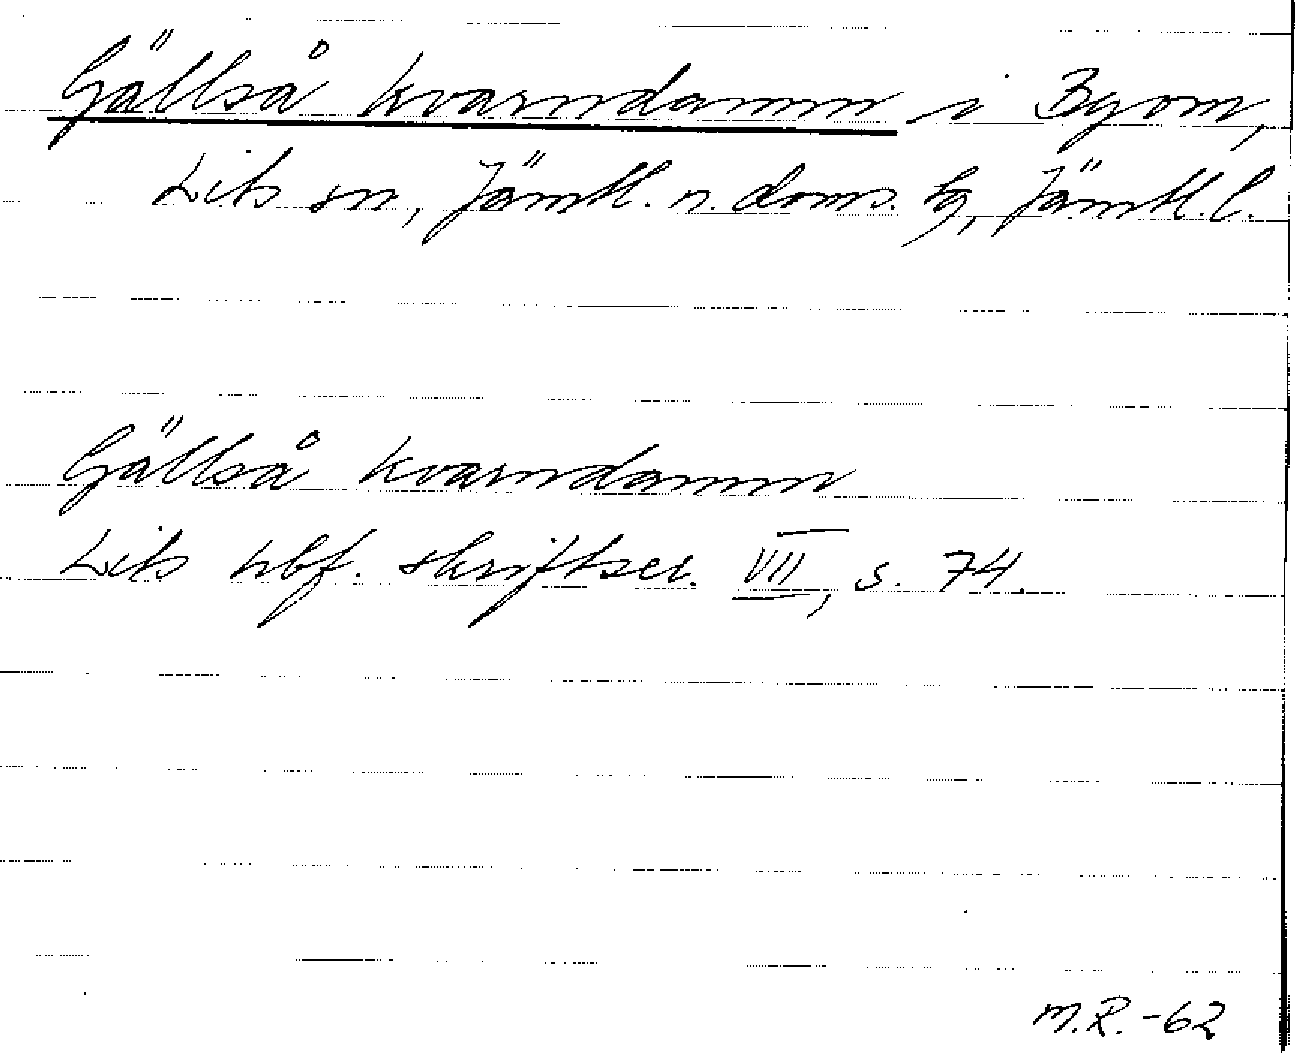 Gällså kvarndamm i Byom,
Lits sn, Jämtl. n. doms. tg, Jämtl. l.
Gällså kvarndamm
Lits hbf. skriftser. VII, s. 74.
M.R.-62